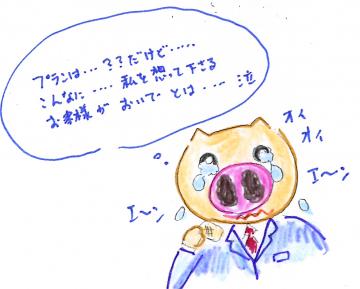 プランは…??だけど…‥
こんなに‥‥私を想って下さる
お客様が おいでとは‥‥泣
オイ
オイ
エ〜ン
エ〜ン